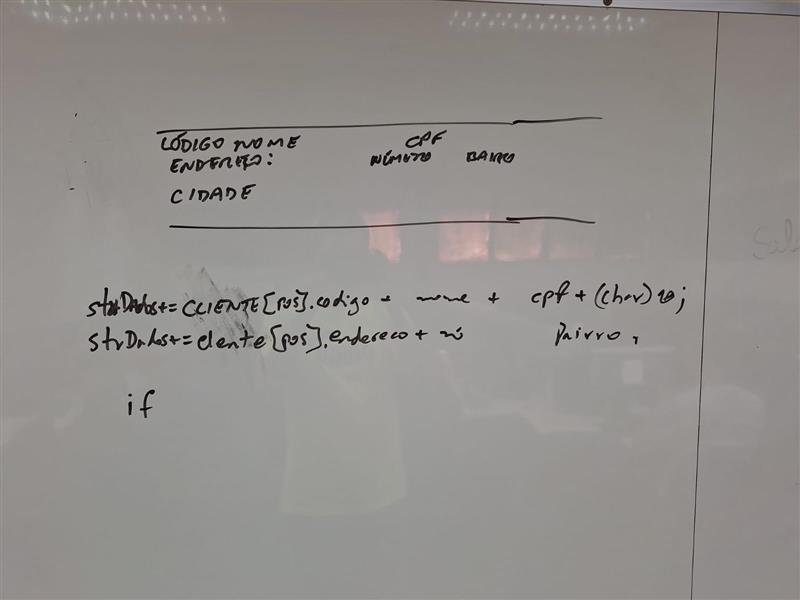 CÓDIGO NOME CPF
ENDEREÇO: NÚMERO BAIRRO
CIDADE
strDados+= CLIENTE[pos].codigo + nome + cpf + (char) 10;
strDados+= cliente[pos].endereco + nº bairro,
if